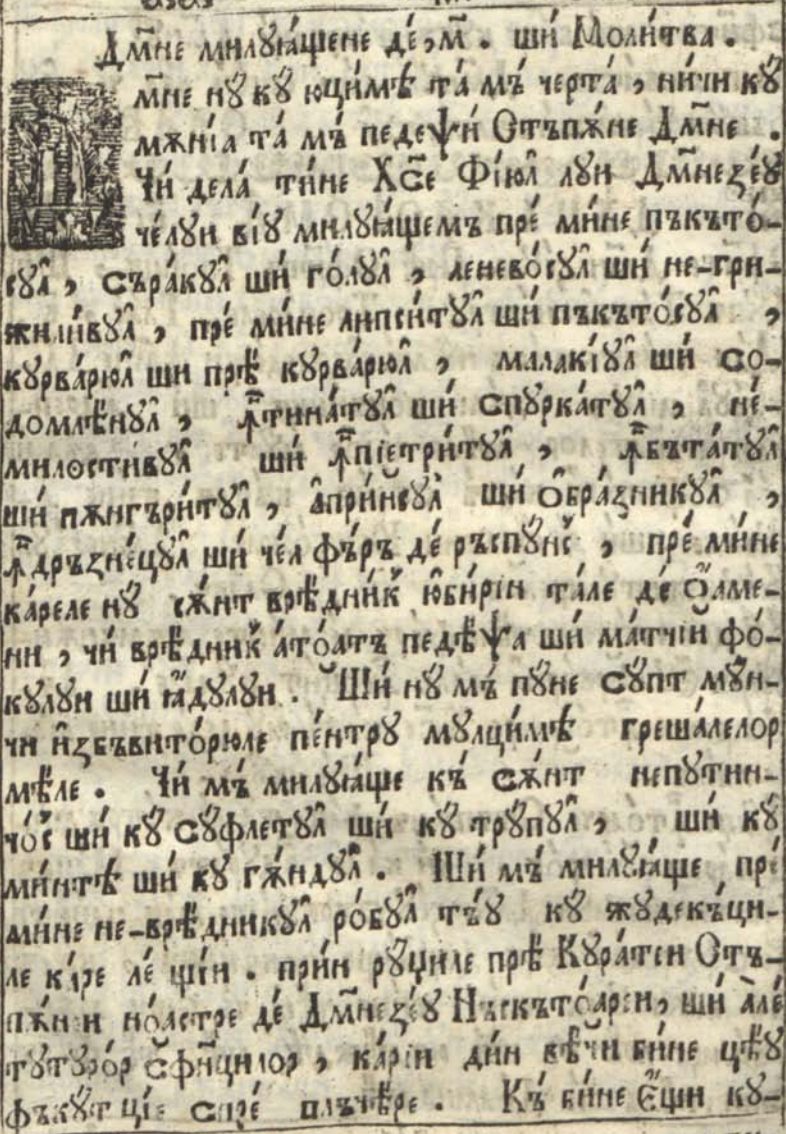 Дм҃не милꙋꙗ́ще́не де́,м҃. шѝ Моли́тва.
м҃не нꙋ̀ кꙋ̀ юци́мѣ та̀ мъ̀ черта̀, ни́чи кꙋ̀
мѫні́а та̀ мъ̀ педеѱѝ Ѻтъпѫ́не Дм҃не.
Чѝ дела̀ ти́не Хс҃е Фі́юл лꙋи Дм҃незе́ꙋ
че́лꙋи ві́ꙋ милꙋꙗ́щемъ прѐ ми́не пъкъто́-
сꙋл, съра́кꙋл шѝ го́лꙋл, ленево́сꙋл шѝ не-гри-
жили́вꙋл, прѐ ми́не липси́тꙋл шѝ пъкъто́сꙋл,
кꙋрва́рюл ши прѣ̀ кꙋрва́рюл, малакі́ꙋл шѝ со-
домлѣ́нꙋл, ꙟ҆тина́тꙋл шѝ спꙋрка́тꙋл, не́-
милости́вꙋл шѝ ꙟ҆піетри́тꙋл, ꙟ҆бъта́тꙋл
шѝ пѫнгъри́тꙋл, а҆при́нсꙋл шѝ ѻ҆бра́зникꙋл,
ꙟ҆дръзне́цꙋл шѝ че́л фъ́ръ дѐ ръспꙋ́нс, прѐ ми́не
ка́реле нꙋ̀ сѫ́нт врѣ́дник ю҆би́рїи та́ле дѐ ѻ҆́аме-
ни, чѝ врѣ́дник а҆то́атъ педѣ́ѱа шѝ ма́тчїй фо́-
кꙋлꙋи шѝ ꙗ҆́дꙋлꙋи. Шѝ нꙋ̀ мъ̀ пꙋ́не сꙋ́пт мꙋ́н-
чи и҆збъвито́рюле пе́нтрꙋ мꙋлци́мѣ греша́лелор
мѣ́ле. Чѝ мъ̀ милꙋꙗ́ще къ̀ сѫ́нт непꙋтин-
чо́с шѝ кꙋ̀ сꙋ́флетꙋл шѝ кꙋ̀ трꙋ́пꙋл, шѝ кꙋ̀
ми́нтѣ шѝ кꙋ гѫ́ндꙋл. Шѝ мъ̀ милꙋꙗ́ще прѐ
ми́не не-врѣ́дникꙋл ро́бꙋл тъ́ꙋ кꙋ̀ жꙋдекъ́ци-
ле ка́ре лѐ щїи. при́н рꙋ́џиле прѣ̀ Кꙋра́теи Ѻтъ-
пѫ́неи но́астре дѐ Дм҃незе́ꙋ Нъскъто́арей, шѝ а҆лѐ
тꙋтꙋро́р сфн҃цилор, ка́рїи ди́н вѣ́чи би́не цѣ́ꙋ
фъкꙋ́т ці́е спрѐ плъче́ре. Къ̀ би́не є҆́щи кꙋ-